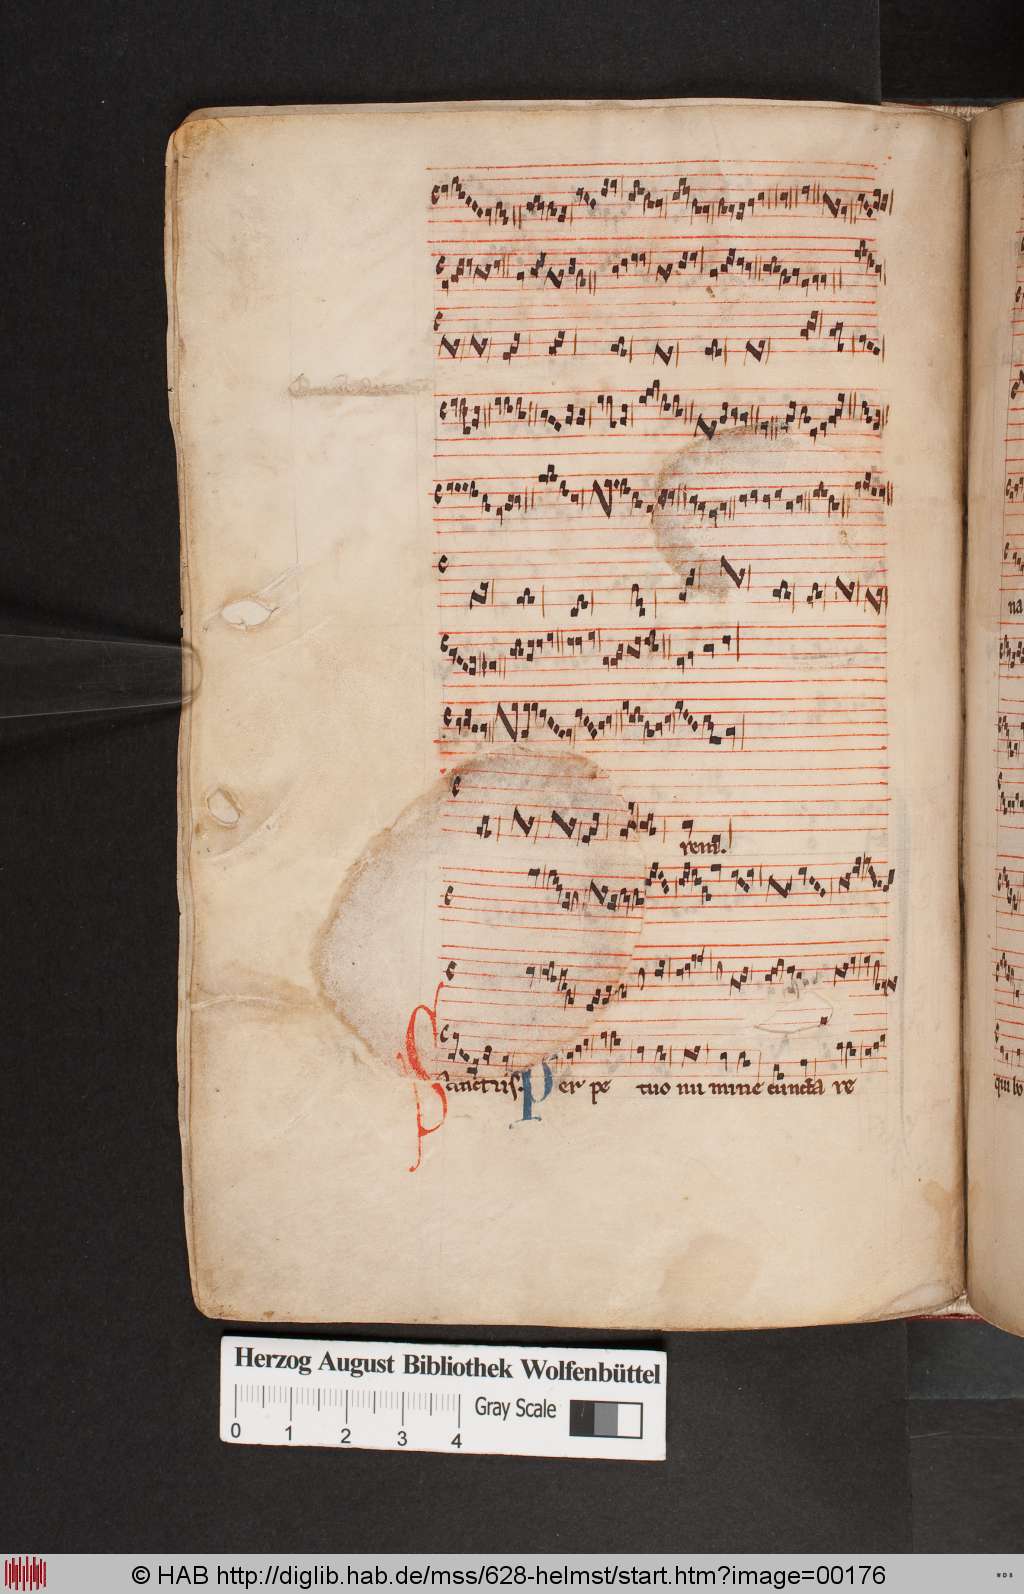 rem.
Sanctus. Per pe tuo nu mine cuncta re
na
qui lo
Herzog August Bibliothek Wolfenbüttel
Gray Scale
0 1 2 3 4
© HAB http://diglib.hab.de/mss/628-helmst/start.htm?image=00176